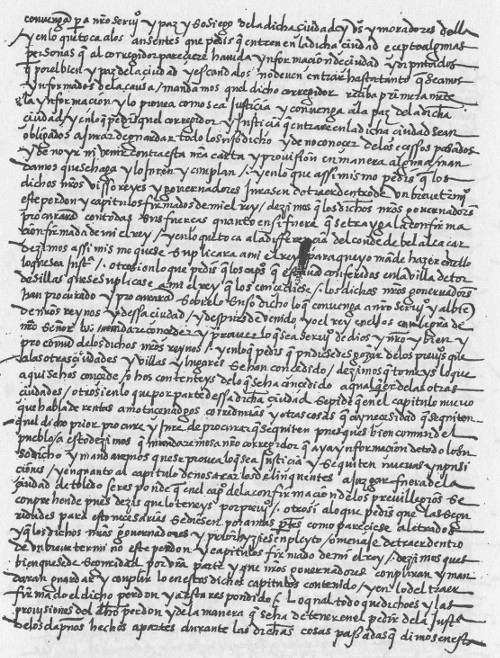 convenga a nro servyo y paz y sosiego de la dicha ciudad e vs y moradores della
y en lo q̃ toca a los ausentes que pedis q̃ entren en la dicha ciudad ecepto algunas
personas q̃ al corregidor pareciere havida ynformacion de ciudad
q̃ por el bien y paz de la ciudad y escandalos no deven entrar hasta tanto q̃ seamos
ynformados de la causa / mandamos quel dicho corregidor reciba
la ynformacion y lo provea como sea justicia y convenga a la paz de la dicha
ciudad / y en lo q̃ pedis quel corregidor y justicia q̃ entrare en la dicha ciudad sean
obligados a jurar de guardar todo lo suso dicho y de no conoçer de los cassos pasados
y de no yr ni venir contra esta mi carta y provision en manera alguna man
damos que se haga y lo juren y cumplan / y en lo que assi mismo pedis q̃ los
dichos mros visorreyes y governadores juraseu de traer dentro de un breve trmo
este perdon y capitulos firmados de mi el rey / dezimos q̃ los dichos mros governadores
procuraran con todas sus fuercas quanto en si fuere q̃ se traya la confirma
cion firmada de mi el rey / y en lo que toca a la diferencia del conde de belalcaçar
dezimos assi mismo que se suplicara a mi el rey para que yo mande hazer en ello
lo que sea just.ª / otrosi en lo que pedis q̃ los caps q̃ conferidas en la villa de tor
desillas que se suplicase a mi el rey q̃ los concediese / los dichos mros governadores
han procurado y procuraran sobre lo suso dicho lo q̃ convenga a nro servyo y al bie
de nros reynos y dessa ciudad / y despues de venido yo el rey en ellos con la gra de
nro señor los mandare conceder y proveer lo q̃ sea servyo de dios y nro y bien y
pro comũ de los dichos mros reynos / y en lo q̃ pedis q̃ pudiesedes gozar de los previos que
a las otras ciudades y villas y lugares se han concedido / dezimos q̃ tomeys lo que
aqui se hos concede o hos contenteys de lo q̃ se ha concedido a qualquier de las otras
ciudades / otrosi en lo que por parte dessa dicha ciudad se pide q̃ en el capitulo nuevo
que habla de rentas corredurias y otras cosas q̃ ay necesidad q̃ se quiten
quel dicho prior procure y jure de procurar q̃ se quiten pues ques bien comun del
pueblo / a esto dezimos q̃ mandaremos a nro corregidor q̃ aya ynformacion de todo lo su
so dicho y mandaremos que se provea lo q̃ sea justicia y se quiten nuevas ynpusi
ciones / y en quanto al capitulo de no sacar los delinquentes a juzgar fuera de la
ciudad de toledo se responde q̃ en el capº de la confirmacion de los previllegios se
conprehonde pues dezis que lo teneys por previo / otrosi a lo que pedis que las segu
ridades para esto necesarias se diesen por amas ptes como pareciese a letrados
y q̃ los dichos mros governadores y prior hiziesen pleyto omenaje de traer dentro
de un breve termino este perdon y capitulos firmado de mi el rey / dezimos ques
bien que se de seguridad por dha parte y que mros governadores conpliran y man
daran guardar y conplir lo en estos dichos capitulos contenido / y en lo del traer
firmado el dicho perdon ya esta respondido / Lo qual todo que dicho es y las
provisiones del dho perdon y de la manera q̃ se ha de tener en el pedir de la just.ª
de los daños hechos a partes durante las dichas cosas passadas q̃ dimos en esta